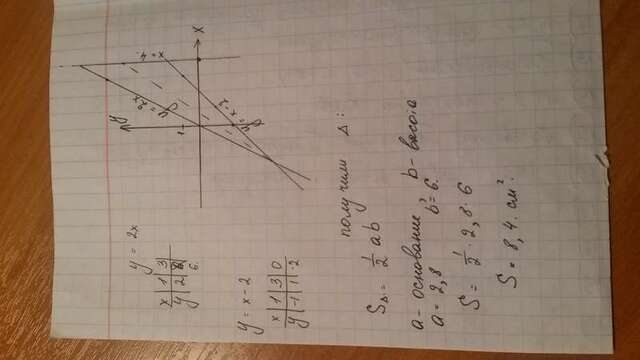 y = 2x
x | 1 | 3
y | 2 | 6
6.
y = x - 2
x | 1 | 3 | 0
y | -1 | 1 | -2
y
y = 2x
x = 4.
1
x
y = x - 2
получили Δ:
SΔ = 1/2 ab
a - основание, b - высота
a = 2,8 b = 6.
S = 1/2 · 2,8 · 6
S = 8,4 см².